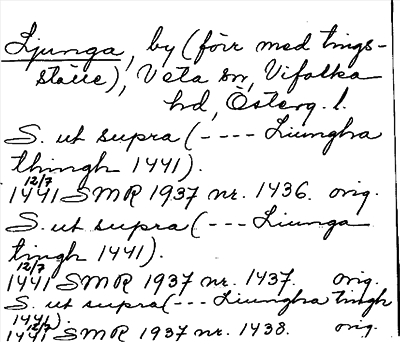 Ljunga, by (förr med tings-
ställe), Veta sn, Vifolka
hd, Österg. l.
S. ut supra (---- Liungha
thingh 1441).
12/7
1441 SMR 1937 nr. 1436. orig.
S. ut supra (--- Liunga
tingh 1441).
12/7
1441 SMR 1937 nr. 1437. orig.
S. ut supra (--- Liungha tingh
1441).
12/7
1441 SMR 1937 nr. 1438. orig.